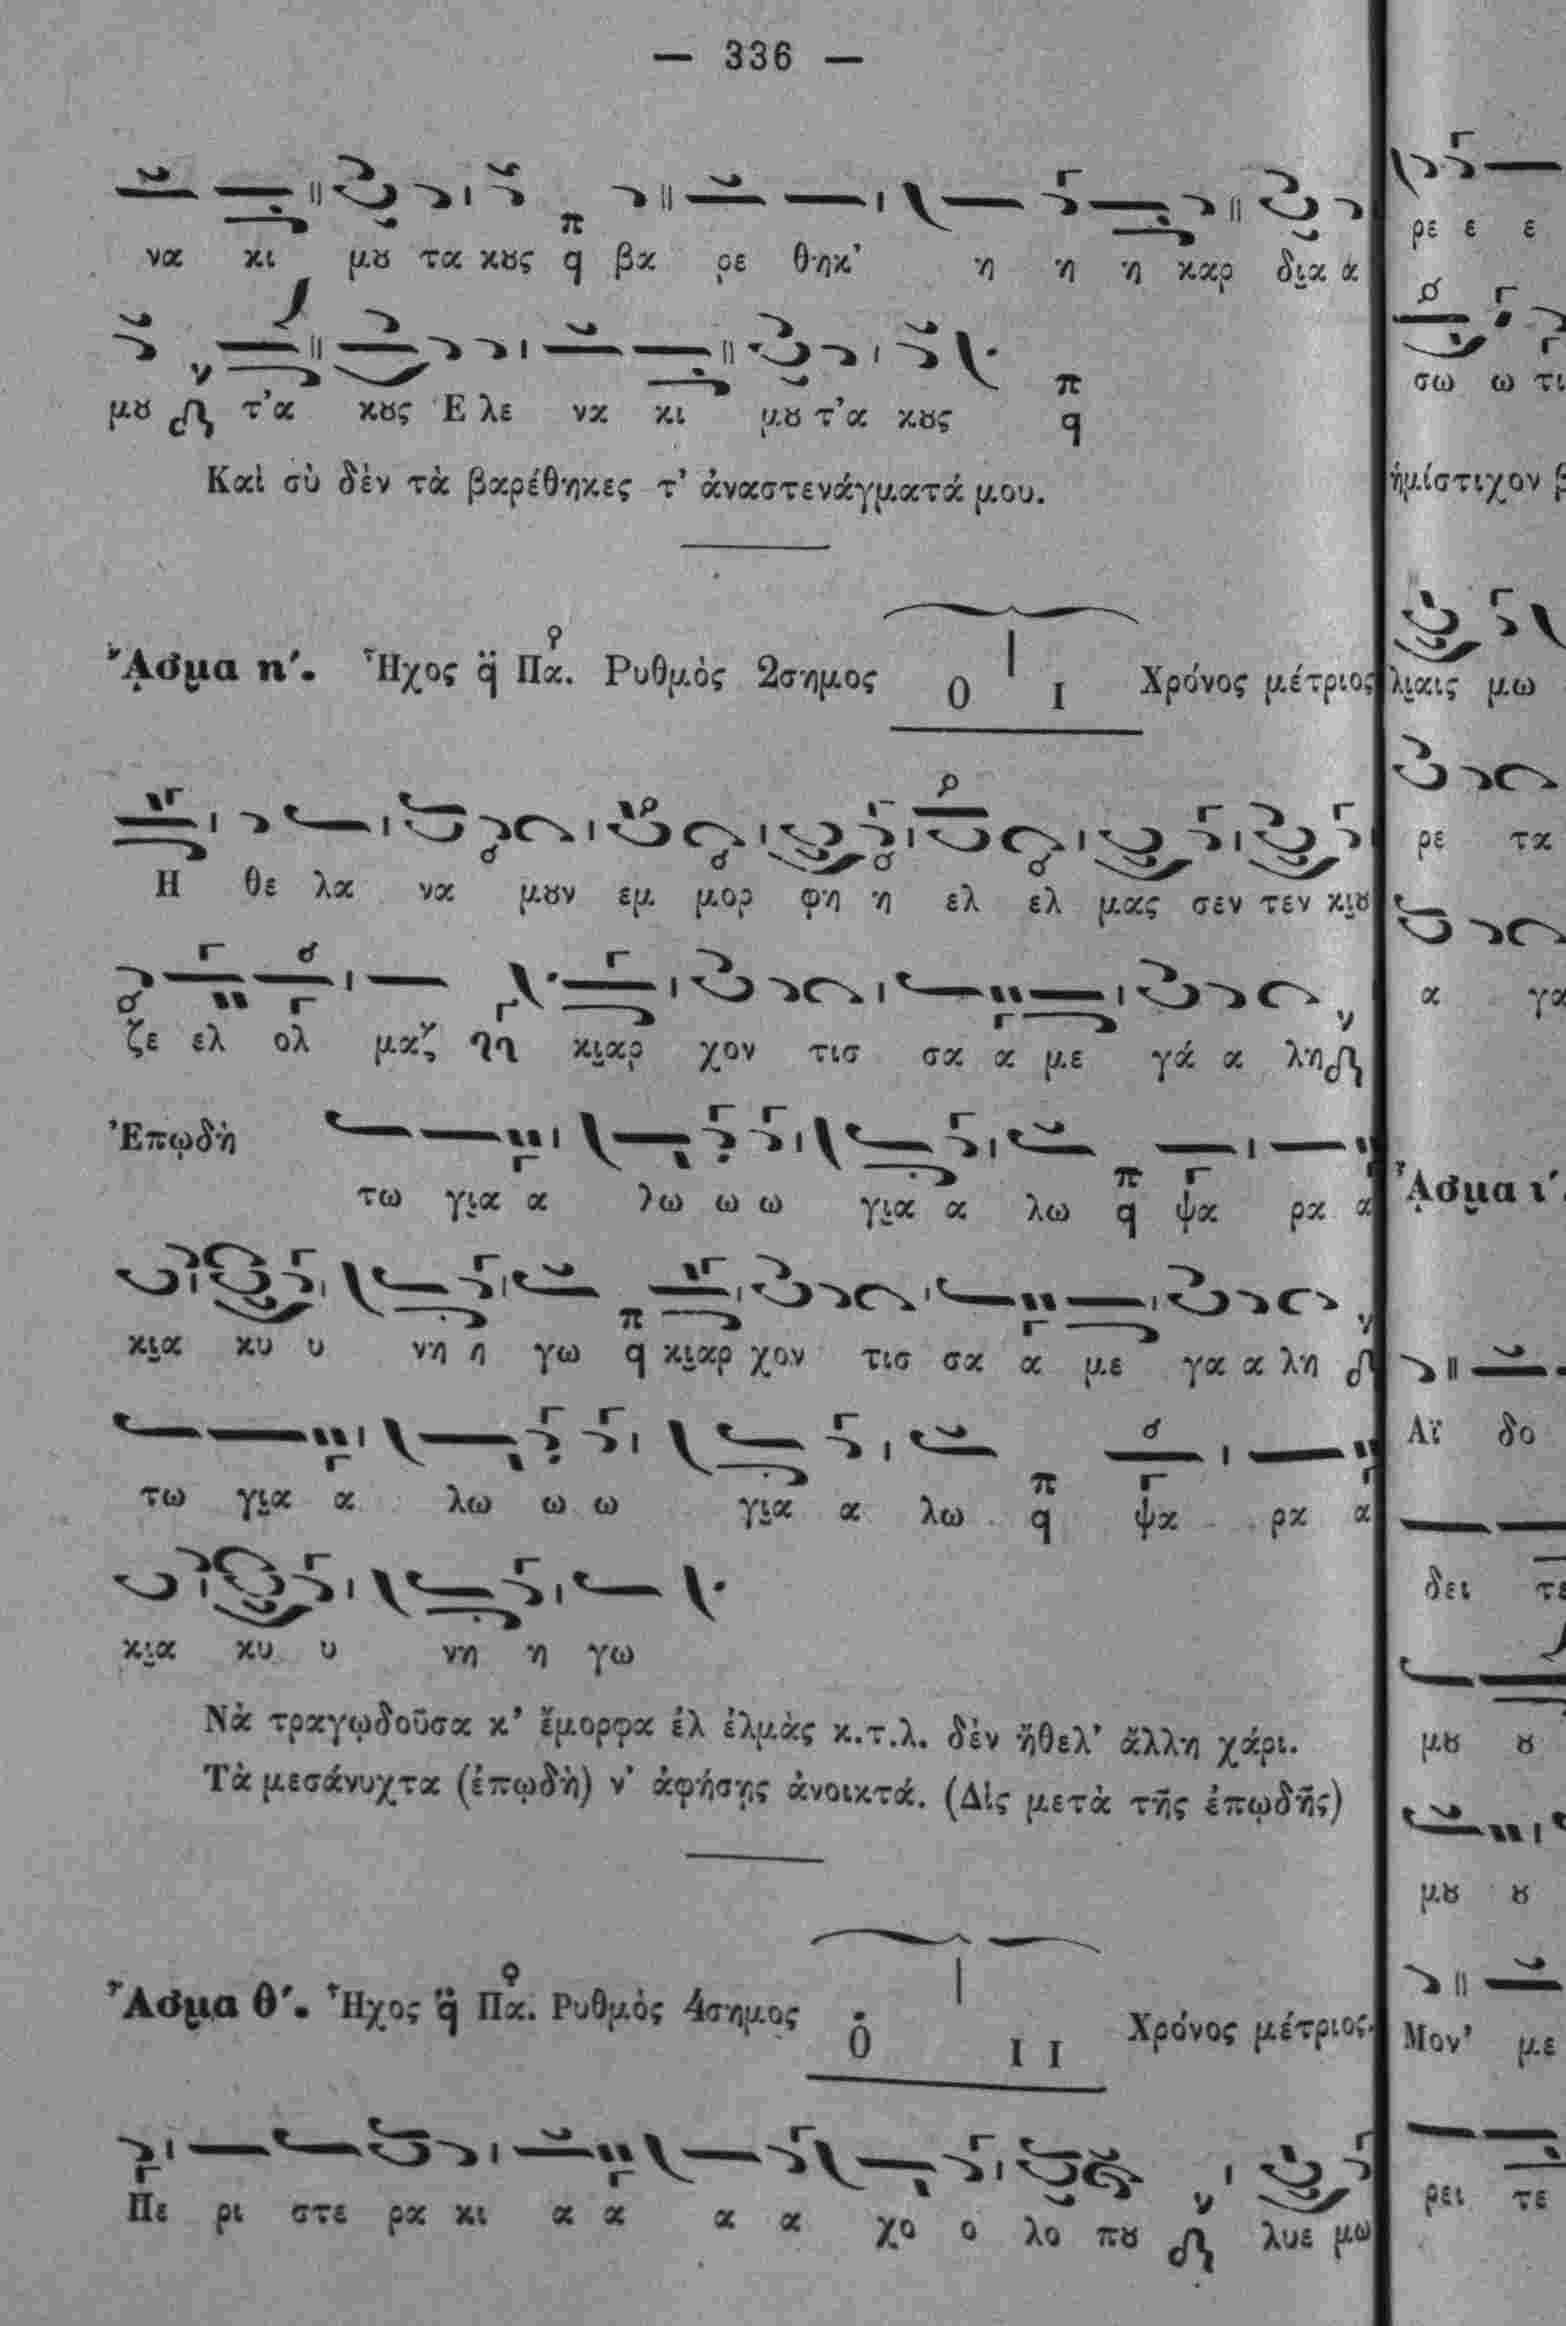 — 336 —
να κι μȣ τα κȣς π q βα ρε θηκ' η η η καρ δι̯α α
μȣ ν τ'α κȣς Ε λε να κι μȣ τ'α κȣς π q
Καὶ σὺ δὲν τὰ βαρέθηκες τ' ἀναστενάγματά μου.
ᾎσμα η΄. Ἦχος q̈ Πα. Ρυθμὸς 2σημος 0 | Ι Χρόνος μέτριος
Η θε λα να μȣν εμ μορ φη η ελ ελ μας σεν τεν κι̯ȣ
ζε ελ ολ μαζ κι̯αρ χον τισ σα α με γά α λη ν
Ἐπῳδὴ τω γι̯α α λω ω ω γι̯α α λω π q ψα ρα α
κι̯α κυ υ νη η γω π q κι̯αρ χον τισ σα α με γα α λη ν
τω γι̯α α λω ω ω γι̯α α λω π q ψα ρα α
κι̯α κυ υ νη η γω
Νὰ τραγῳδοῦσα κ' ἔμορφα ἐλ ἐλμὰς κ.τ.λ. δὲν ἤθελ' ἄλλη χάρι.
Τὰ μεσάνυχτα (ἐπῳδὴ) ν' ἀφήσῃς ἀνοικτά. (Δὶς μετὰ τῆς ἐπῳδῆς)
ᾎσμα θ΄. Ἦχος q̈ Πα. Ρυθμὸς 4σημος 0 | Ι Ι Χρόνος μέτριος.
Πε ρι στε ρα κι α α α α χο ο λο πȣ ν λυε μω
ρε ε ε
σω ω τι
ἡμίστιχον β
λι̯αις μω
ρε τα
α γα
ᾎσμα ι΄
Αϊ δο
δει τε
μȣ ȣ
μȣ ȣ
Μον' με
ρει τε